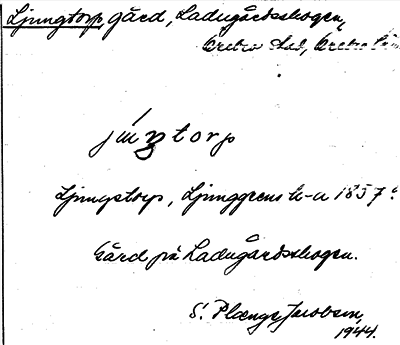 Ljungtorp, gård, Ladugårdsskogen,
Örebro stad, Örebro län
júŋtorp
Ljungstorp, Ljunggrens k-a 1857.
Gård på Ladugårdsskogen.
S. Plænge Jacobson,
1944.